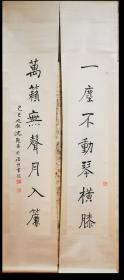 一塵不動琴橫膝
萬籟無聲月入簾